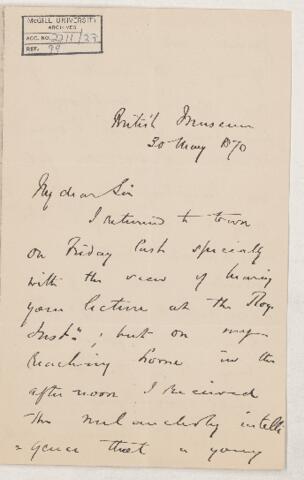 McGILL UNIVERSITY
ARCHIVES
ACC. NO. 2211/
REF. 79
British Museum
30 May 1870
My dear Sir
I returned to town
on Friday last specially
with the view of hearing
your lecture at the Roy.
Instn; but on my
reaching home in the
afternoon I received
the melancholy intelli
=gence that a young